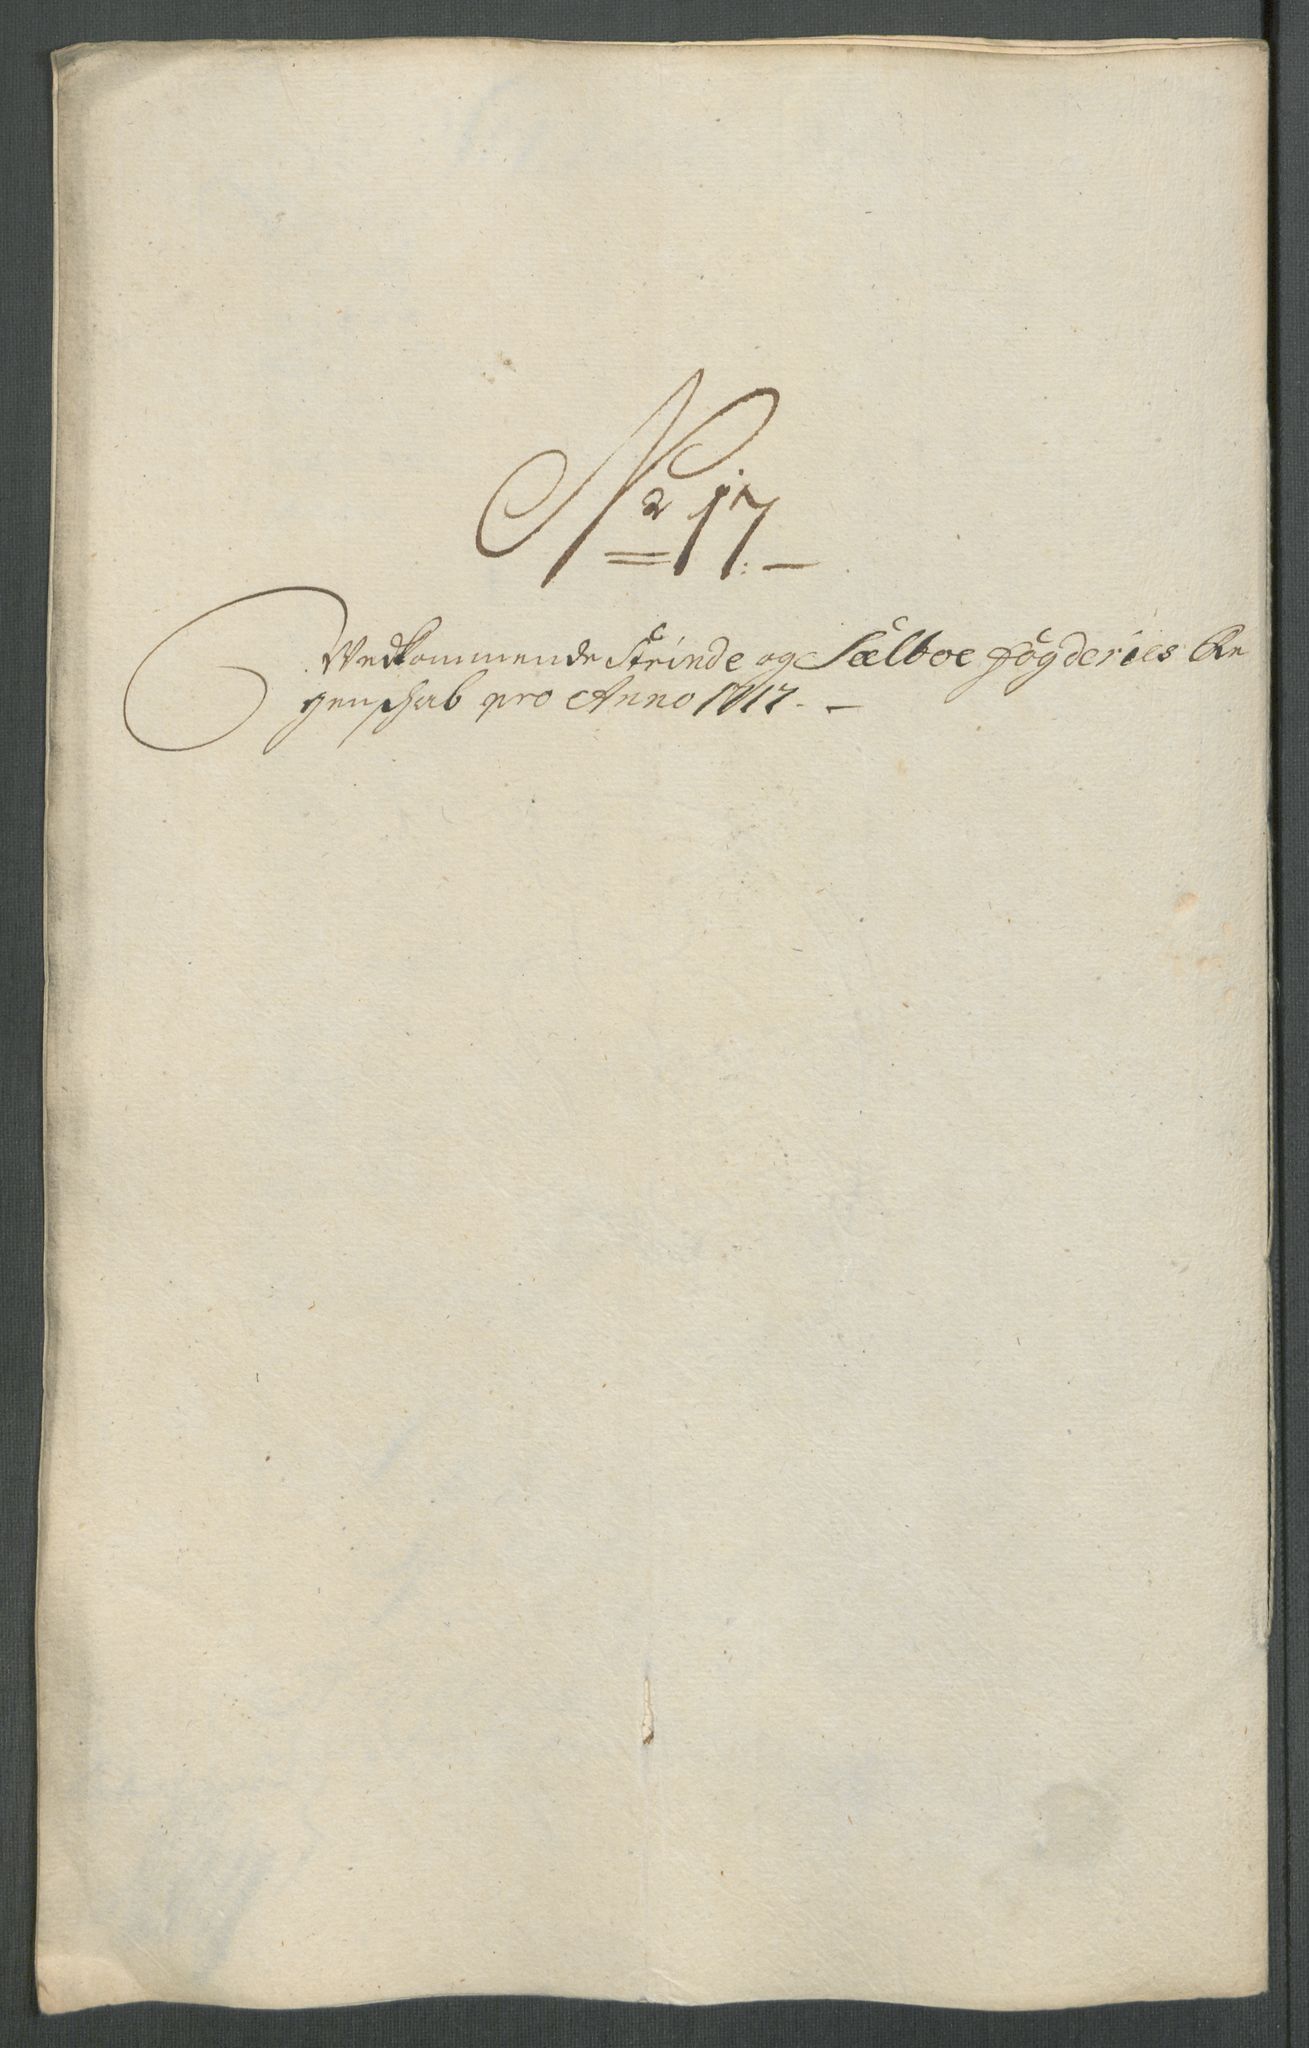 No 17.
Vedkommende Strinde og Sælboe fögderies Re
genschab pro Anno 1717.